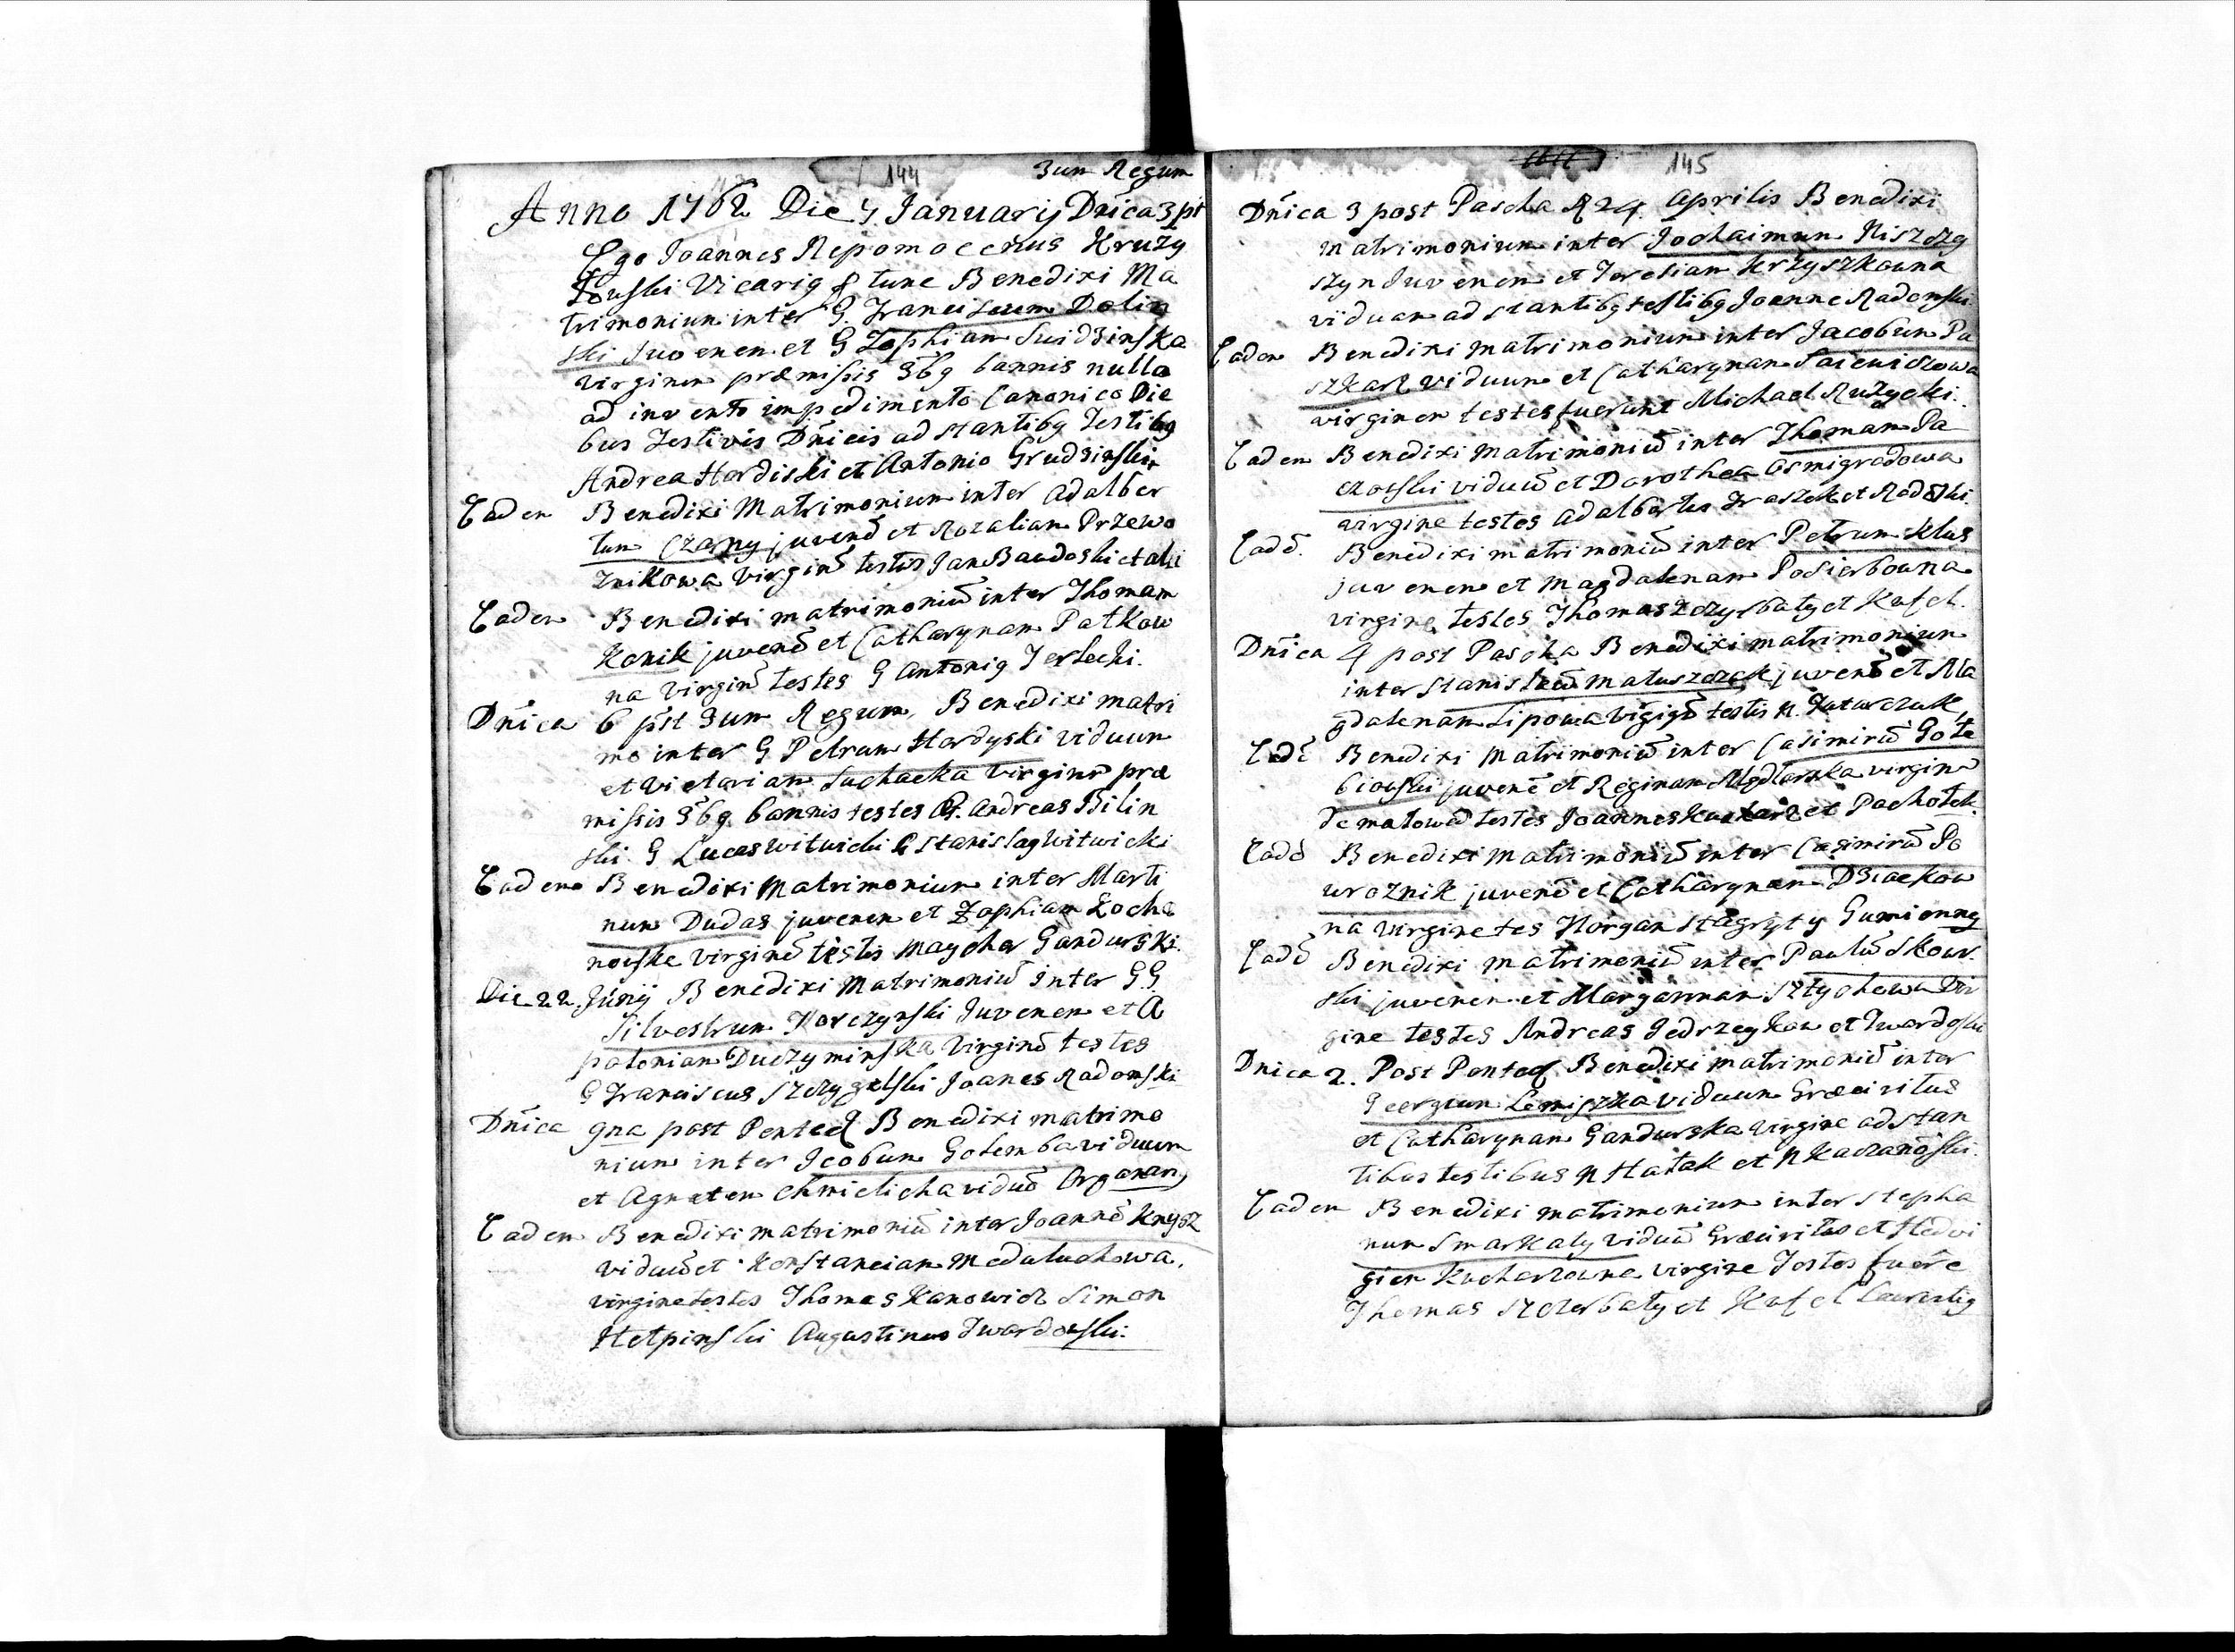 144
3um Regum
Anno 1762 Die 4 Januarij Dnica 3 pt
Ego Joannes Nepomocenus Kruzy
Towski Vicarig tunc Benedixi Ma
trimonium inter G. Franciscum Dolin
ski Juvenem et G Zophiam Swidzinska
virginem præmissis 3bg bannis nullo
ad invento impedimento Canonico Die
bus Festivis Dnicis ad stantibg Testibg
Andrea Hordiski et Antonio Grudzinski
Eadem Benedixi Matrimonium inter Adalber
tum Czarny juvenē et Rozaliam Przewo
znikowa virginē testes Jan Bandoski et alii
Eadem Benedixi matrimoniū inter Thomam
Konik juvenē et Catharynam Patkow
na virginē testes G Antonig Terlecki.
Dnica 6 pst 3um Regum, Benedixi matri
mo inter G Petrum Hordyski viduum
et Victoriam Suchacka virginē præ
missis 3bg bannis testes G. Andreas Bilin
ski G Lucas Witwicki G Stanislag Witwicki
Eadem Benedixi Matrimonium inter Marti
num Dudas juvenem et Zophiam Kocha
nowska virginē testis Maycher Gandurski.
Die 22 Junij Benedixi Matrimoniū inter G G
Silvestrum Korczynski Juvenem et A
poloniam Duczyminska Virginē testes
G Franciscus Szczygelski Joanes Radomski
Dnica 9na post Pented Benedixi matrimo
nium inter Jcobum Golemba viduum
et Agnetem Chmielicha viduā Organary
Eadem Benedixi matrimoniū inter Joannē Knysz
viduū et Konstanciam Medaluchowa.
virgine testes Thomas Kanowicz Simon
Helpinski Augustinus Twardowski.
145
Dnica 3 post Pascha R 24 Aprilis Benedixi
matrimonium inter Jochaimum Kiszczy
szyn Juvenem et Teresiam Krzyszkowna
viduam ad stantibg testibg Joanne Radomski
Eadem Benedixi matrimonium inter Jacobum Pa
szkarz viduum et Catharynam
virginem testes fuerunt Michael Ruzycki.
Eadem Benedixi Matrimoniū inter Thomam Pa
czowski viduū et Dorothea Osmigrodowa
virgine testes Adalbertus Fraszek et Radōski
Eadē. Benedixi matrimoniū inter Petrum Klus
juvenem et Magdalenam Posierbowna
virgine testes Thomas Szczyrbaty et Kusch.
Dnica 4 post Pascha Benedixi matrimonium
inter Stanislaū Matuszczak juvenē et Ma
gdalenam Lipowa virgigē testis N. Kuturczuk
Eadē Benedixi Matrimoniū inter Casimirū Gołę
biowski juvenē et Reginam Medlarska virginē
de małowod testes Joannes Kucharz et Pachołek.
Eadē Benedixi Matrimoniū inter Casimirū Po
wroznik juvenē et Catharynam Dziackow
na virgine tes Horgan Stagryty Gumienny
Eadē Benedixi matrimoniū inter Paulū Skow
ski juvenem et Margannam Sztychowa Vir
gine testes Andreas Jedrzeykow et Twardoski
Dnica 2. Post Pented Benedixi matrimoniū inter
Georgium Lemiszka viduum Græci ritus
et Catharynam Gandurska virgine adstan
tibus testibus N Hatak et N Kaczanoski.
Eadem Benedixi matrimonium inter Stepha
num Smarkaty viduū Græci ritus et Hedvi
giem Kucharzowna virgine Testes fuere
Thomas Szczerbaty et Kusch Laurentig